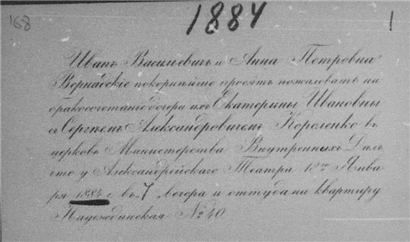 168
1884
1
Иванъ Васильевичъ и Анна Петровна
Вернадскіе покорнѣйше просятъ пожаловать на
бракосочетаніе дочери ихъ Екатерины Ивановны
съ Сергѣемъ Александровичемъ Короленко въ
церковь Министерства Внутреннихъ Дѣлъ
что у Александрійскаго Театра Янва
ря 1884 г. въ 7 ч. вечера и оттуда на квартиру
Надеждинская № 40